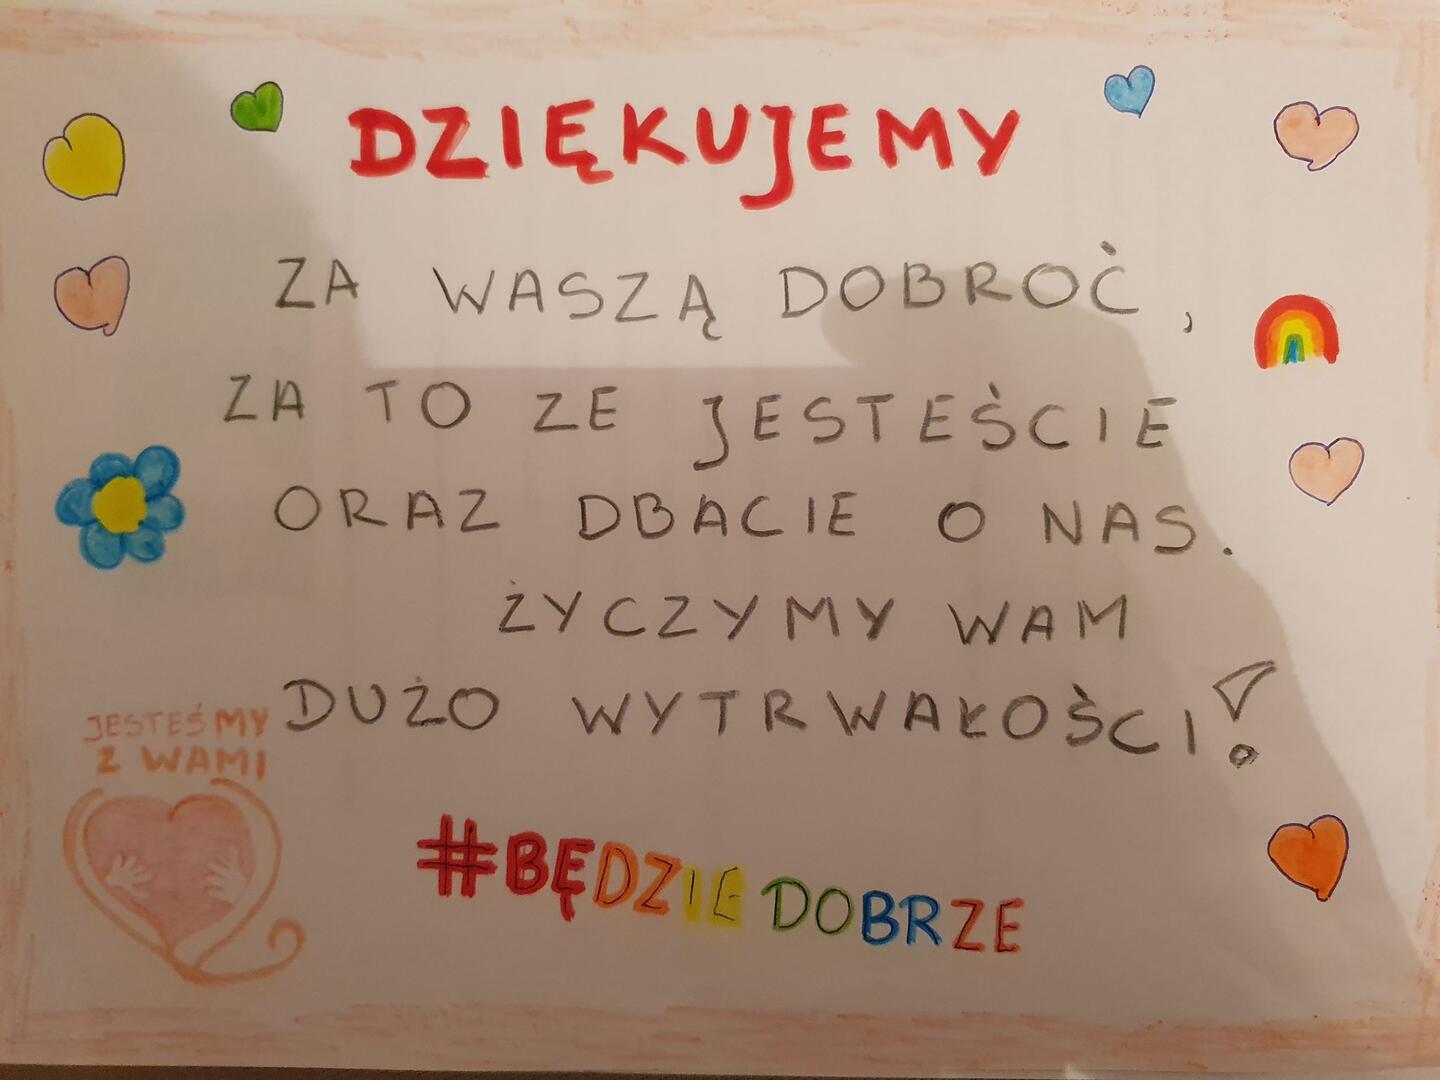 DZIĘKUJEMY
ZA WASZĄ DOBROĆ,
ZA TO ZE JESTEŚCIE
ORAZ DBACIE O NAS.
ŻYCZYMY WAM
DUŻO WYTRWAŁOŚCI!
JESTEŚMY
Z WAMI
#BĘDZIE DOBRZE